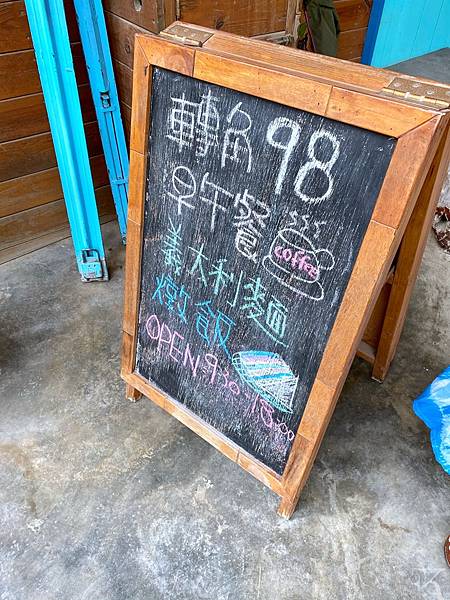 轉角98
早午餐 coffee
義大利麵
燉飯
OPEN 930-1800